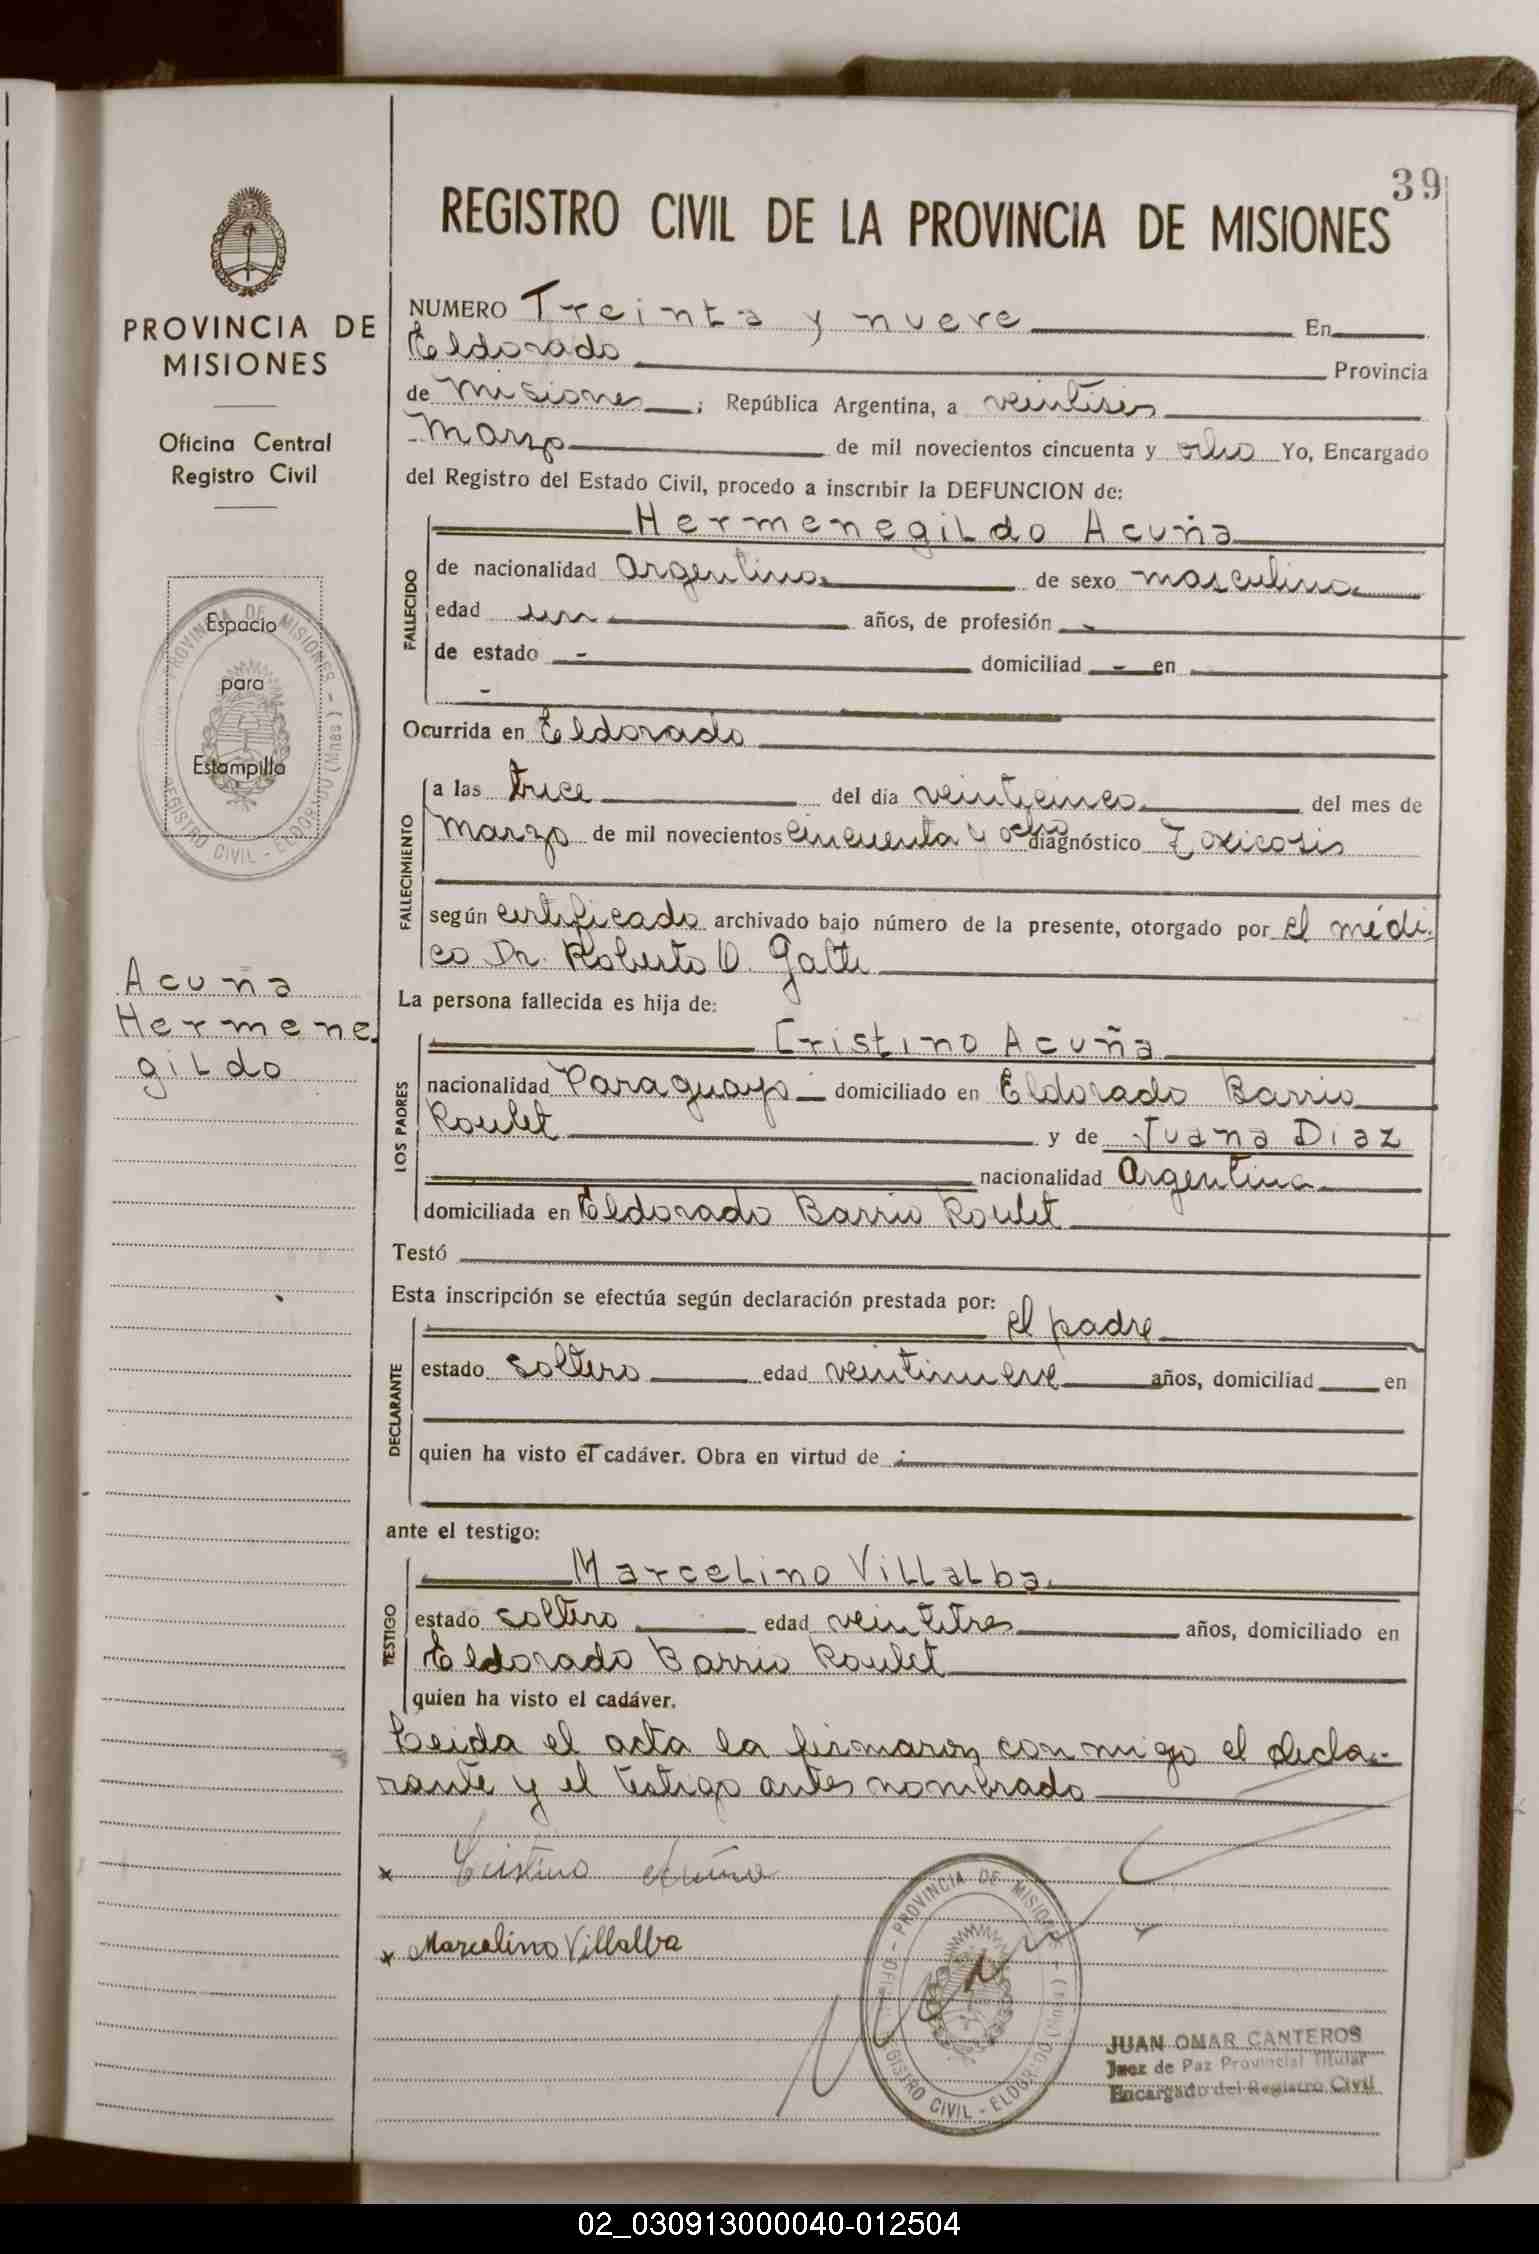 39
REGISTRO CIVIL DE LA PROVINCIA DE MISIONES
PROVINCIA DE
MISIONES
Oficina Central
Registro Civil
Espacio
para
Estampilla
PROVINCIA DE MISIONES - (Mnes)
REGISTRO CIVIL - ELDORADO
Acuña
Hermene
gildo
NUMERO Treinta y nueve En
Eldorado Provincia
de Misiones ; República Argentina, a veintiseis
Marzo de mil novecientos cincuenta y ocho Yo, Encargado
del Registro del Estado Civil, procedo a inscribir la DEFUNCION de:
Hermenegildo Acuña
FALLECIDO
de nacionalidad Argentina de sexo masculino
edad un años, de profesión -
de estado - domiciliad - en
-
Ocurrida en Eldorado
FALLECIMIENTO
a las trece del día veinticinco del mes de
Marzo de mil novecientos cincuenta y ocho diagnóstico Toxicosis
según certificado archivado bajo número de la presente, otorgado por el médi-
co Dr. Roberto O. Gatti
La persona fallecida es hija de:
LOS PADRES
Cristino Acuña
nacionalidad Paraguayo domiciliado en Eldorado Barrio
Roulet y de Juana Diaz
nacionalidad Argentina
domiciliada en Eldorado Barrio Roulet
Testó
Esta inscripción se efectúa según declaración prestada por:
DECLARANTE
el padre
estado soltero edad veintinueve años, domiciliad en
quien ha visto el cadáver. Obra en virtud de
ante el testigo:
TESTIGO
Marcelino Villalba
estado soltero edad veintitres años, domiciliado en
Eldorado Barrio Roulet
quien ha visto el cadáver.
Leida el acta la firmaron conmigo el decla-
rante y el testigo antes nombrado
x Cristino Acuña
x Marcelino Villalba
PROVINCIA DE MISIONES
REGISTRO CIVIL - ELDORADO
JUAN OMAR CANTEROS
Juez de Paz Provincial Titular
Encargado del Registro Civil
02_030913000040-012504